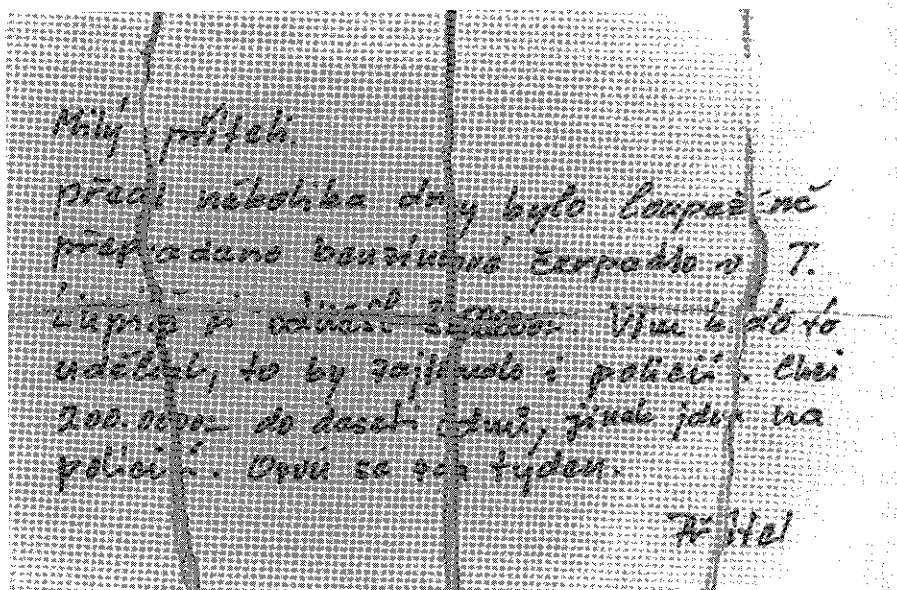 Milý příteli.
před několika dny bylo loupežně
přepadano benzínové čerpadlo v T.
Lupič si odnášl Vím kdo to
udělal, to by zajímalo i policii. Chci
200.000,- do deseti dnů, jinak jdu na
policii. Ozvu se za týden.
Přítel